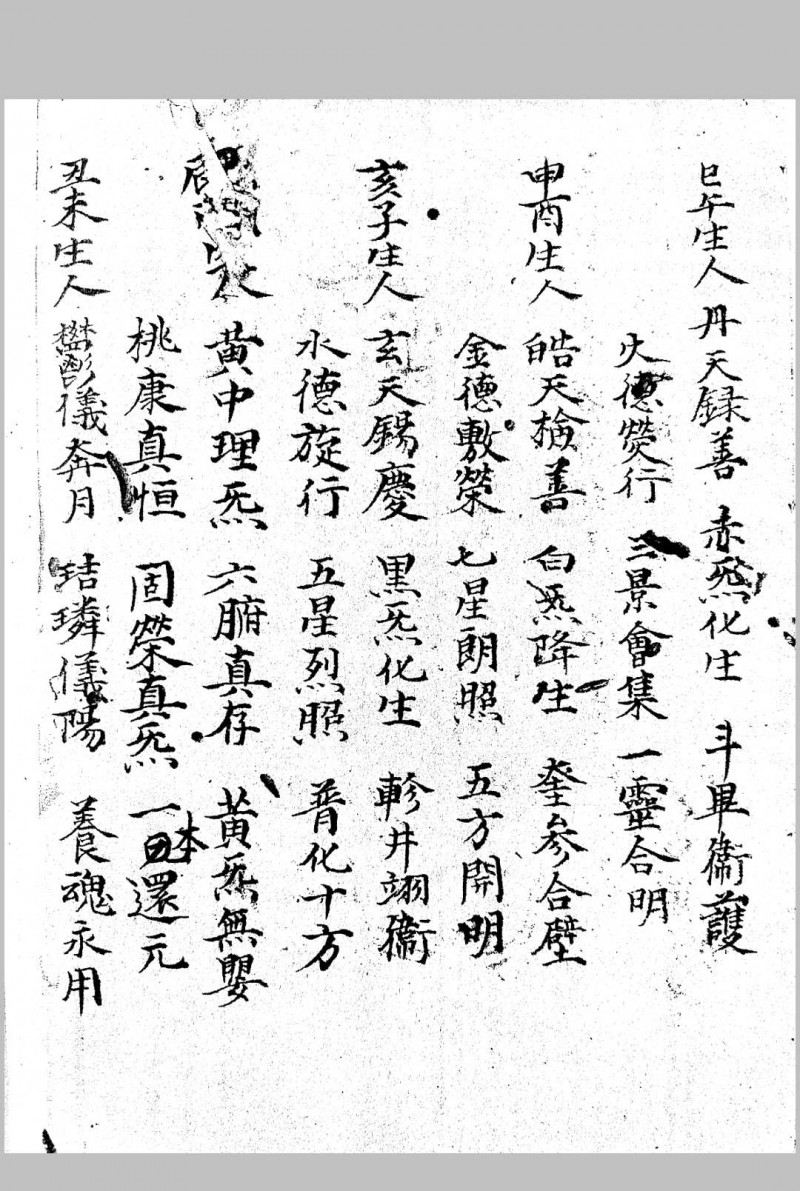 巳午生人 丹天録善 赤炁化生 斗畢衛護
火德熒行 三景會集 一靈合明
申酉生人 皓天檢善 白炁降生 奎參合壁
金德敷榮 七星朗照 五方開明
亥子生人 玄天錫慶 黒炁化生 軫井翊衞
水德旋行 五星烈照 普化十方
辰 黄中理炁 六腑真存 黃炁無嬰
桃康真恒 固榮真炁 一本還元
丑未生人 儀奔月 琺璘儀陽 養魂永用